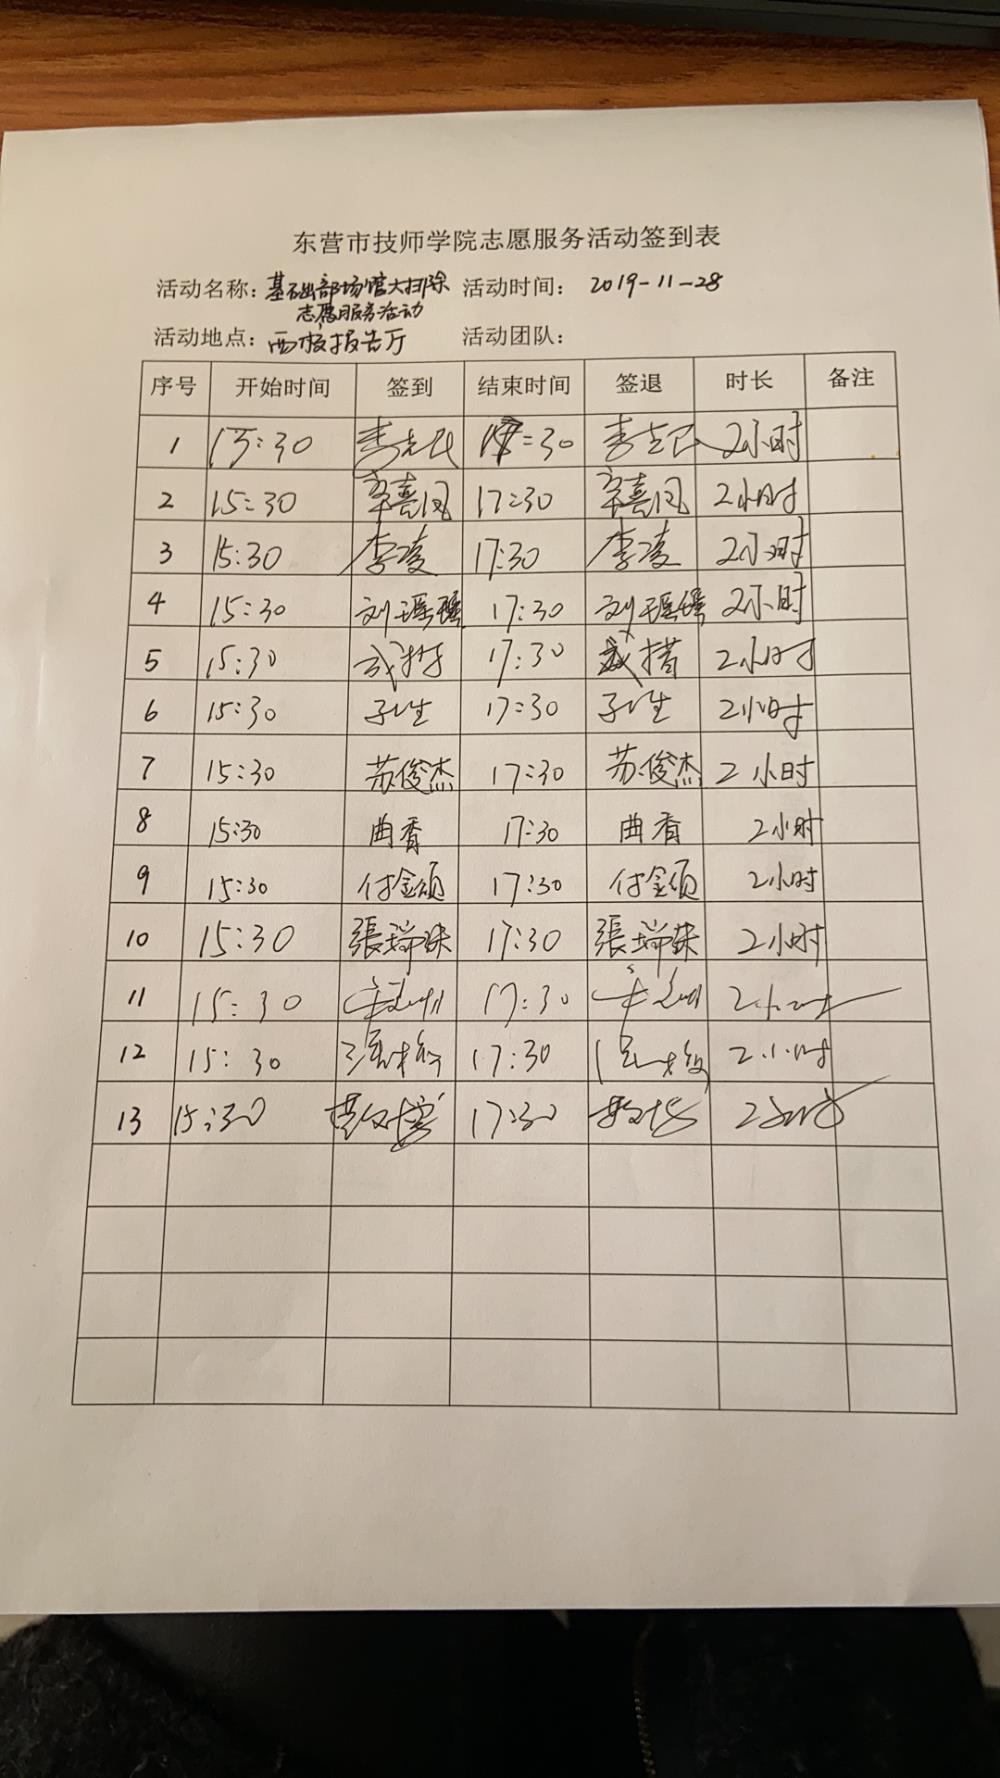 东营市技师学院志愿服务活动签到表
活动名称：基础部场馆大扫除 活动时间： 2019-11-28
志愿服务活动
活动地点：西校报告厅 活动团队：
序号 开始时间 签到 结束时间 签退 时长 备注
1 15:30 17:30 2小时
2 15:30 辛喜凤 17:30 辛喜凤 2小时
3 15:30 李凌 17:30 李凌 2小时
4 15:30 刘瑶瑶 17:30 刘瑶瑶 2小时
5 15:30 17:30 2小时
6 15:30 17:30 2小时
7 15:30 苏俊杰 17:30 苏俊杰 2小时
8 15:30 曲香 17:30 曲香 2小时
9 15:30 付金颂 17:30 付金颂 2小时
10 15:30 張瑞珠 17:30 張瑞珠 2小时
11 15:30 17:30 2小时
12 15:30 17:30 2小时
13 15:30 17:30 2小时